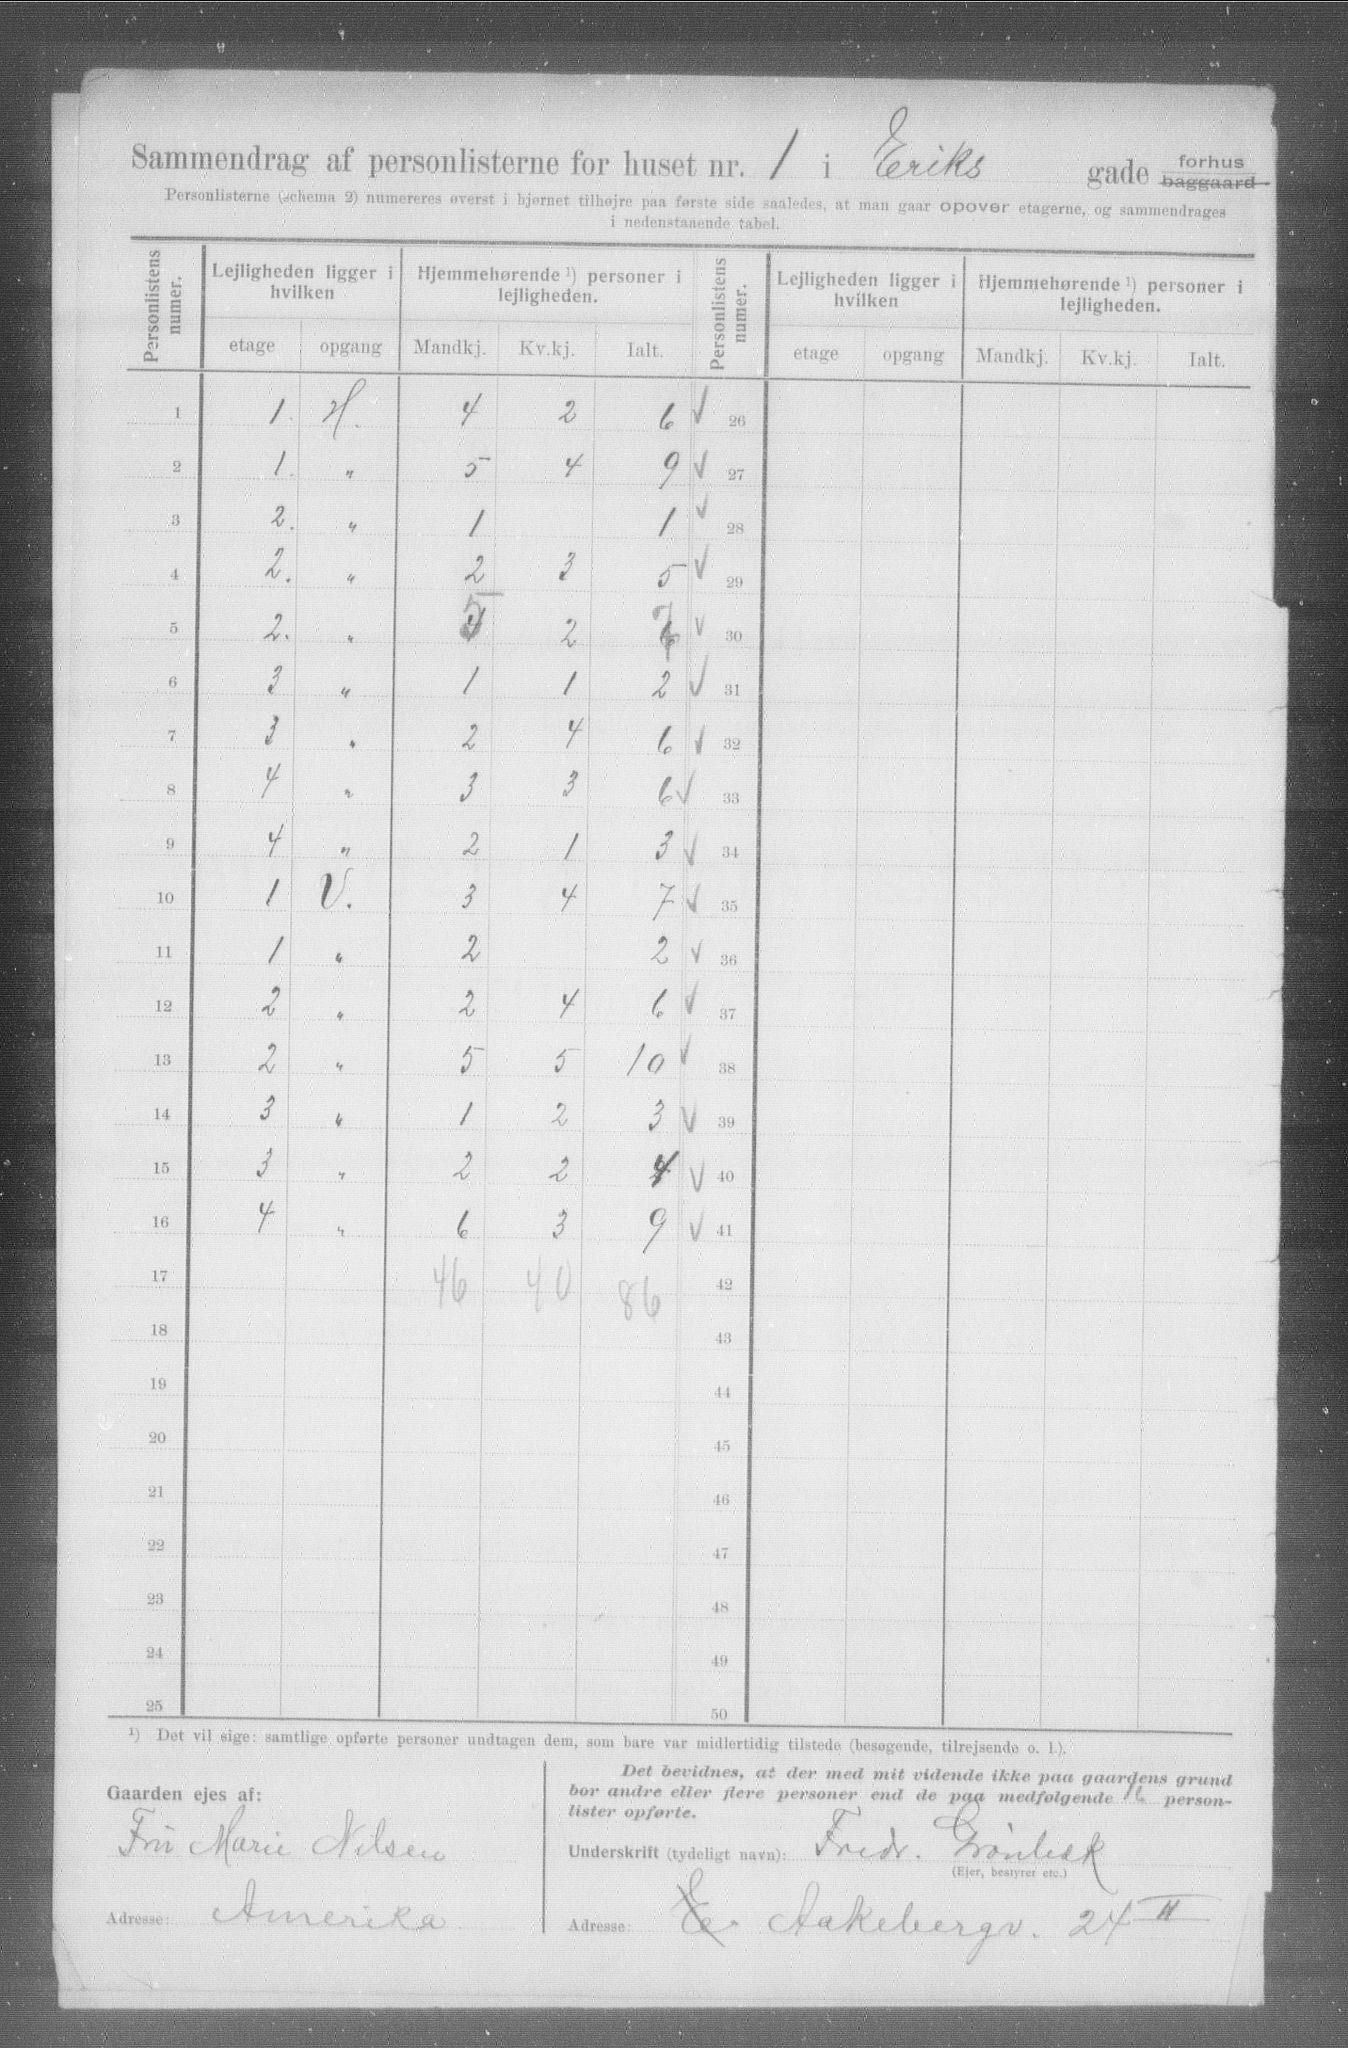 Sammendrag af personlisterne for huset nr. 1 i Eriks gade forhus baggaard
Personlisterne (schema 2) numereres øverst i hjørnet tilhøjre paa første side saaledes, at man gaar opover etagerne, og sammendrages
i nedenstaaende tabel.
Personlistens numer. Lejligheden ligger i hvilken Hjemmehørende ¹) personer i lejligheden. Personlistens numer. Lejligheden ligger i hvilken Hjemmehørende ¹) personer i lejligheden.
etage opgang Mandkj. Kv.kj. Ialt. etage opgang Mandkj. Kv.kj. Ialt.
1 1. H. 4 2 6 ✓ 26
2 1. " 5 4 9 ✓ 27
3 2. " 1 1 ✓ 28
4 2. " 2 3 5 ✓ 29
5 2. " 5 2 7 ✓ 30
6 3 " 1 1 2 ✓ 31
7 3 " 2 4 6 ✓ 32
8 4 " 3 3 6 ✓ 33
9 4 " 2 1 3 ✓ 34
10 1 V. 3 4 7 ✓ 35
11 1 " 2 2 ✓ 36
12 2 " 2 4 6 ✓ 37
13 2 " 5 5 10 ✓ 38
14 3 " 1 2 3 ✓ 39
15 3 " 2 2 4 ✓ 40
16 4 " 6 3 9 ✓ 41
17 46 40 86 42
18 43
19 44
20 45
21 46
22 47
23 48
24 49
25 50
¹) Det vil sige: samtlige opførte personer undtagen dem, som bare var midlertidig tilstede (besøgende, tilrejsende o. l.).
Gaarden ejes af:
Fru Marie Nilsen
Adresse: Amerika
Det bevidnes, at der med mit vidende ikke paa gaardens grund
bor andre eller flere personer end de paa medfølgende 16 person-
lister opførte.
Underskrift (tydeligt navn): Fredr. Grönbæk
(Ejer, bestyrer etc.)
Adresse: Aakebergv. 24 II